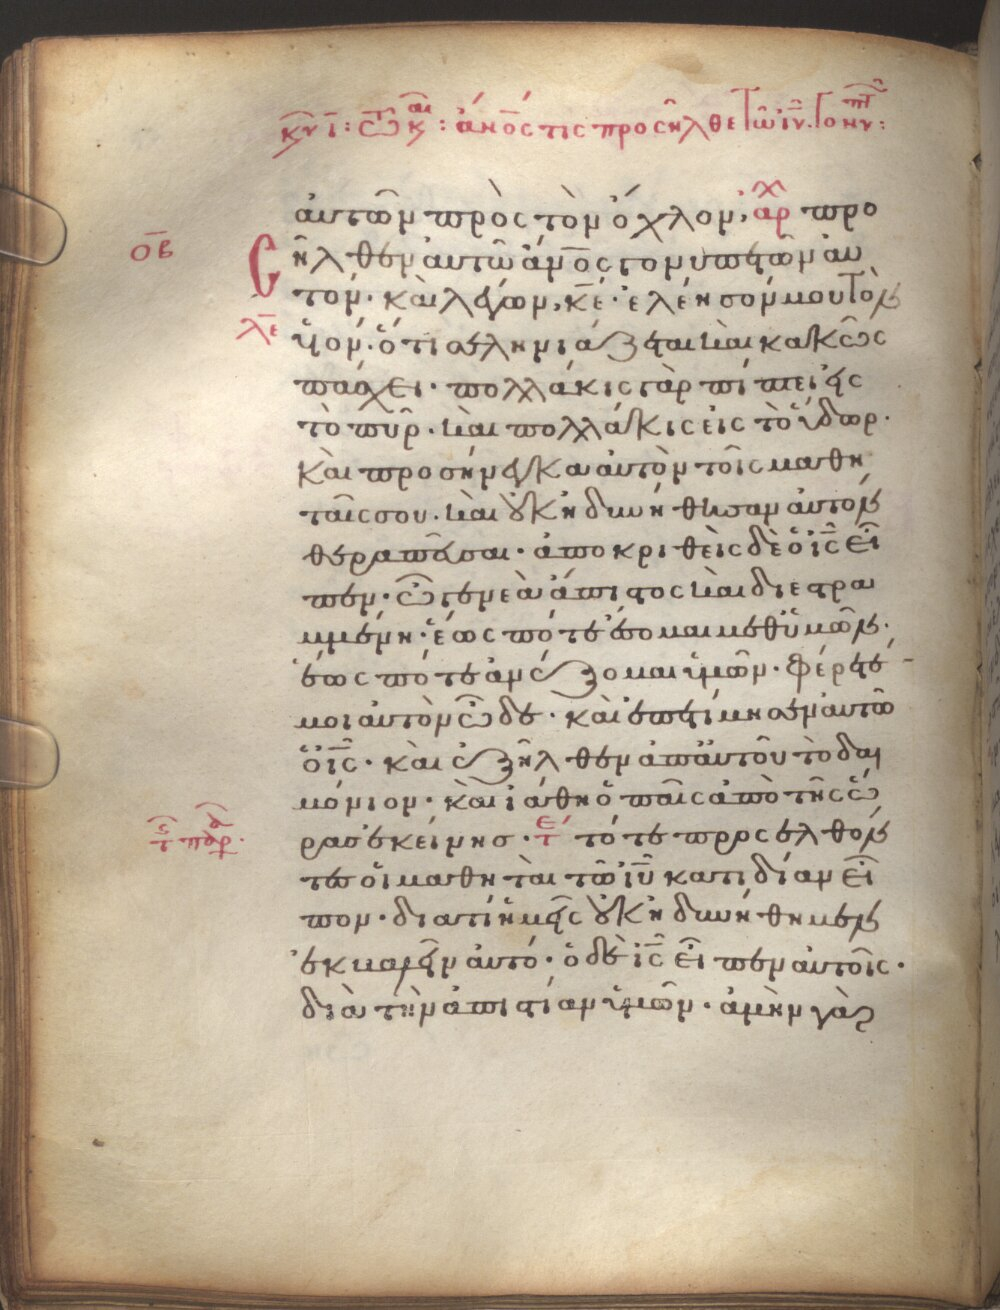 κυ ι: τω κ αι: ἀνο̅ς τις προσῆλθε τῶ ἰυ. γονυπτ:
ἀυτῶν πρὸς τὸν ὄχλον, ἀρχ προ
οβ
σῆλθεν ἀυτῶ ἀν̅ο̅ς γονυπετῶν ἀυ
τόν· καὶ λέγων, κ̅ε̅· ἐλέησόν μου τὸν
λε
ὑιόν· ὅτι σεληνιάζεται καὶ κακῶς
πάσχει· πολλάκις γὰρ πίπτει εἰς
τὸ πῦρ· καὶ πολλάκις εἰς τὸ ὕδωρ·
καὶ προσήνεγκα αὐτὸν τοῖς μαθη
ταῖς σου· καὶ ὀυκ ἠδυνήθησαν ἀυτὸν
θεραπεῦσαι· ἀποκριθεὶς δὲ ὁ ι̅ς̅ εἶ
πεν· ὦ γενεὰ ἄπιστος καὶ διεστρα
μμένη· ἕως πότε ἔσομαι μεθ' ὑμῶν·
ἕως πότε ἀνέξομαι ὑμῶν· φέρετέ
μοι αὐτὸν ὧδε· καὶ ἐπετίμησεν ἀυτῶ
ὁ ι̅ς̅· καὶ ἐξῆλθεν ἀπ' ἀυτοῦ τὸ δαι
μόνιον· καὶ ἰάθη ὁ παῖς ἀπὸ τῆς ὥ
τε παρ.
ρας ἐκείνης· τε τότε προσελθόν
τες ὁι μαθηταὶ τῶ ἰ̅υ̅ κατιδίαν εἶ
πον· διατί ἡμεῖς ὀυκ ἠδυνήθημεν
ἐκβαλεῖν ἀυτό· ὁ δὲ ι̅ς̅ εἶπεν ἀυτοῖς·
διὰ τὴν ἀπιστίαν ὑμῶν· ἀμὴν γὰρ